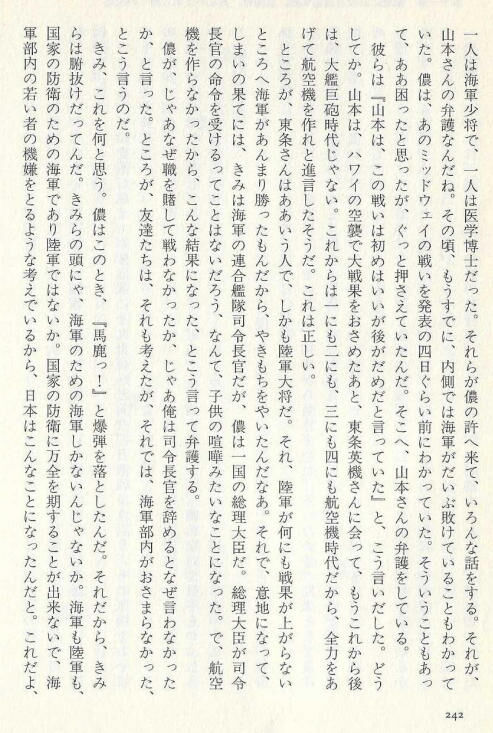 一人は海軍少将で、一人は医学博士だった。それらが儂の許へ来て、いろんな話をする。それが、
山本さんの弁護なんだね。その頃、もうすでに、内側では海軍がだいぶ敗けていることもわかって
いた。儂は、あのミッドウェイの戦いを発表の四日ぐらい前にわかっていた。そういうこともあっ
て、ああ困ったと思ったが、ぐっと押さえていたんだ。そこへ、山本さんの弁護をしている。
彼らは『山本は、この戦いは初めはいいが後がだめだと言っていた』と、こう言いだした。どう
してか。山本は、ハワイの空襲で大戦果をおさめたあと、東条英機さんに会って、もうこれから後
は、大艦巨砲時代じゃない。これからは一にも二にも、三にも四にも航空機時代だから、全力をあ
げて航空機を作れと進言したそうだ。これは正しい。
ところが、東条さんはああいう人で、しかも陸軍大将だ。それ、陸軍が何にも戦果が上がらない
ところへ海軍があんまり勝ったもんだから、やきもちをやいたんだなあ。それで、意地になって、
しまいの果てには、きみは海軍の連合艦隊司令長官だが、儂は一国の総理大臣だ。総理大臣が司令
長官の命令を受けるってことはないだろう、なんて、子供の喧嘩みたいなことになった。で、航空
機を作らなかったから、こんな結果になった、とこう言って弁護する。
儂が、じゃあなぜ職を賭して戦わなかったか、じゃあ俺は司令長官を辞めるとなぜ言わなかった
か、と言った。ところが、友達たちは、それも考えたが、それでは、海軍部内がおさまらなかった、
とこう言うのだ。
きみ、これを何と思う。儂はこのとき、『馬鹿っ！』と爆弾を落としたんだ。それだから、きみ
らは腑抜けだってんだ。きみらの頭にゃ、海軍のための海軍しかないんじゃないか。海軍も陸軍も、
国家の防衛のための海軍であり陸軍ではないか。国家の防衛に万全を期することが出来ないで、海
軍部内の若い者の機嫌をとるような考えでいるから、日本はこんなことになったんだと。これだよ、
242